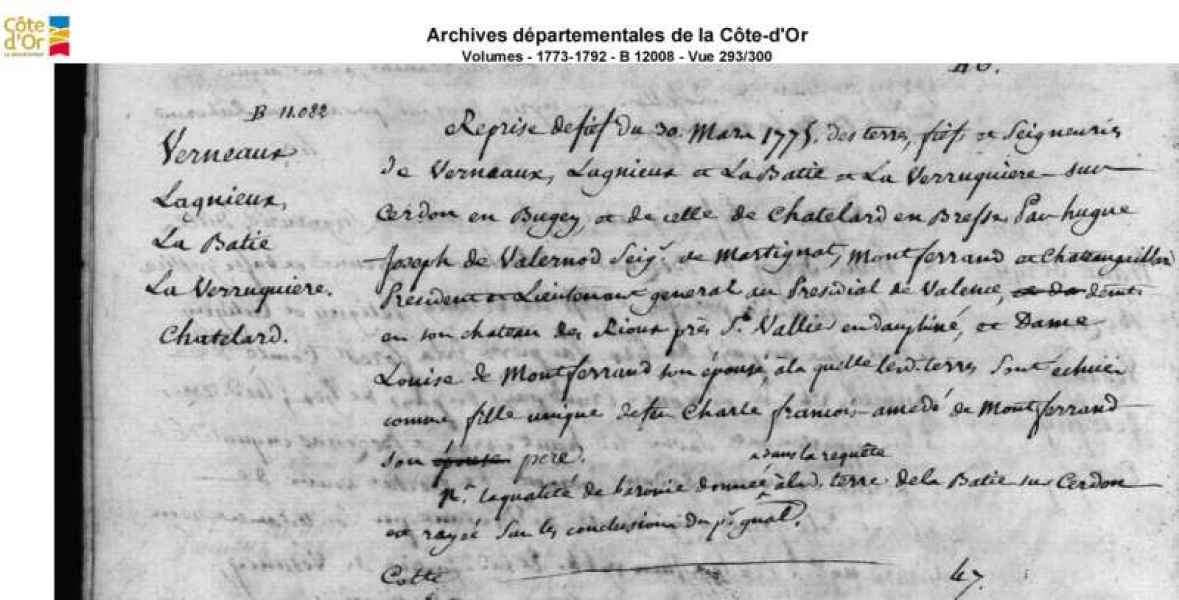 Côte
d'Or
Archives départementales de la Côte-d'Or
Volumes - 1773-1792 - B 12008 - Vue 293/300
46.
B 11.082
Verneaux
Lagnieux,
La Batie
La Verruquiere.
Chatelard.
Reprise de fief du 30. Mars 1775. des terres, fiefs et Seigneuries
de Verneaux, Lagnieux et La Batie et La Verruquiere sur
Cerdon en Bugey, et de celle de Chatelard en Bresse Par hugue
Joseph de Valernod Seigr. de Martignat, Montferrand et Chateauguillon
President et Lieutenant general au Presidial de Valence, et de demt.
en son chateau des Rioux près St Vallier en dauphiné, et Dame
Louise de Montferrand son épouse, à la quelle lesd. terres sont echues
comme fille unique de feu Charle francois amedé de Montferrand
son épouse pere.
dans la requête
la qualité de baronie donnée à lad. terre de la Batie sur Cerdon
est rayée sur les conclusions du pr. gnal.
Cotte 47